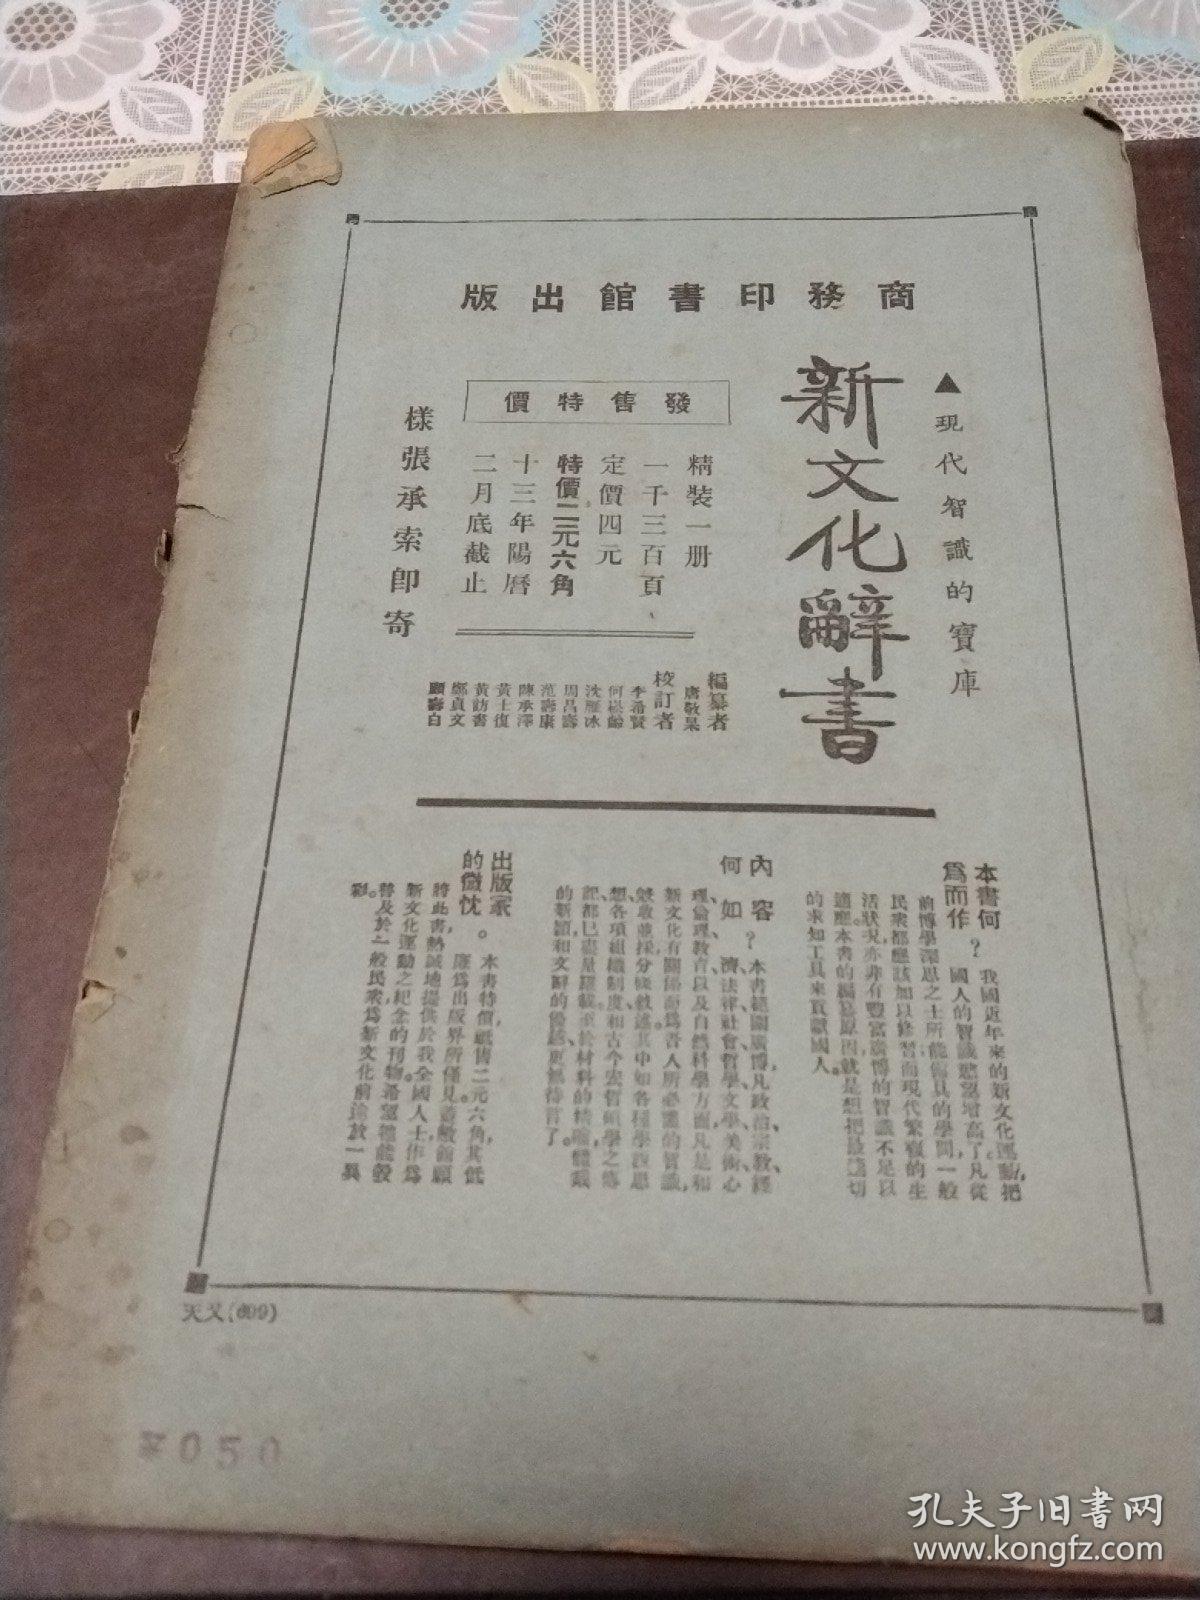 商務印書館出版
▲現代智識的寶庫
新文化辭書
發售特價
精裝一册
一千三百頁
定價四元
特價二元六角
十三年陽曆
二月底截止
樣張承索即寄
編纂者
唐敬杲
校訂者
李希賢
何崧齡
沈雁冰
周昌壽
范壽康
陳承澤
黃士復
黃訪書
鄭貞文
顧壽白
本書何
爲而作？
我國近年來的新文化運動，把
國人的智識慾望增高了。凡從
前博學深思之士所能備具的學問，一般
民衆都應該加以修習；而現代繁複的生
活狀況，亦非有豐富廣博的智識不足以
適應。本書的編纂原因，就是想把最適切
的求知工具來貢獻國人。
內容
何如？
本書範圍廣博，凡政治、宗教、經
濟、法律、社會、哲學、文學、美術、心
理、倫理、教育、以及自然科學方面，凡是和
新文化有關係而爲吾人所必需的智識，
想各項組織制度和古今宏哲碩學之傳
記，都已盡量羅載。至於材料的精確，體裁
的新穎，和文辭的優越，更無待言了。
出版家
的微忱。
本書特價祇售二元六角，其低
廉爲出版界所僅見。蓋敝館願
將此書熱誠地提供於我全國人士，作爲
新文化運動之紀念的刊物。希望牠能般
普及於一般民衆，爲新文化前途放一異
彩。
天又(699)
050
孔夫子旧书网
www.kongfz.com